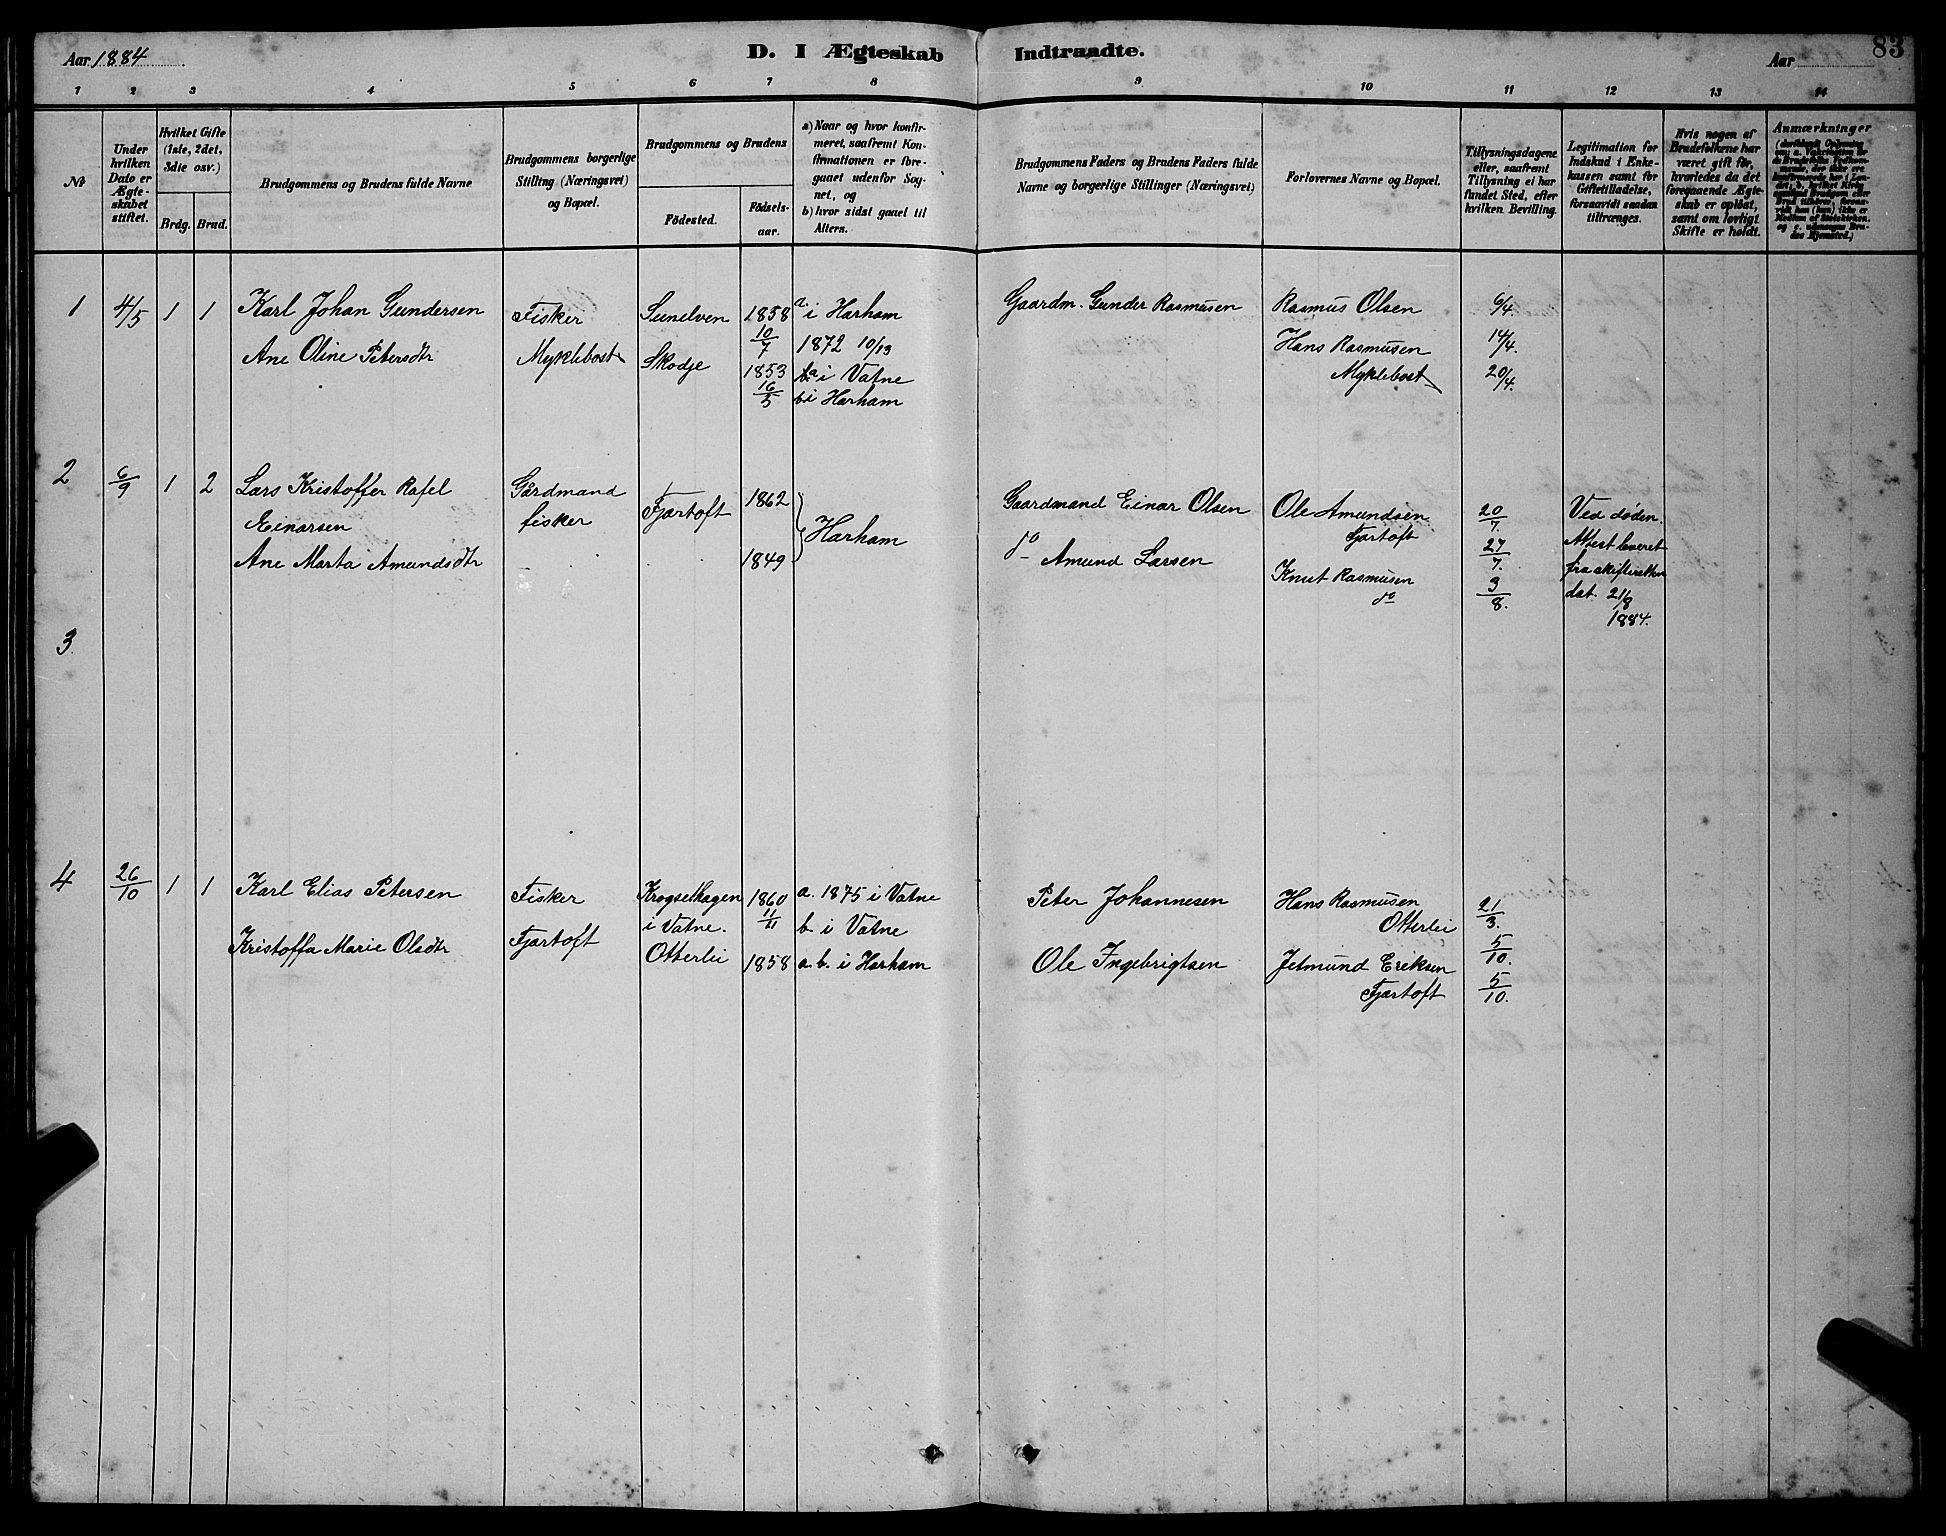 Aar 1884
D. I Ægteskab Indtraadte.
Aar
83
1 2 3 4 5 6 7 8 9 10 11 12 13 14
No
Under
hvilken
Dato er
Ægte-
skabet
stiftet.
Hvilket Gifte
(1ste, 2det,
3die osv.)
Brdg. Brud.
Brudgommens og Brudens fulde Navne
Brudgommens borgerlige
Stilling (Næringsvei)
og Bopæl.
Brudgommens og Brudens
Födested.
Födsels-
aar.
a) Naar og hvor konfir-
meret, saafremt Kon-
firmationen er fore-
gaaet udenfor Sog-
net, og
b) hvor sidst gaaet til
Alters.
Brudgommens Faders og Brudens Faders fulde
Navne og borgerlige Stillinger (Næringsvei)
Forlovernes Navne og Bopæl.
Tillysningsdagene
eller, saafremt
Tillysning ei har
fundet Sted, efter
hvilken Bevilling.
Legitimation for
Indskud i Enke-
kassen samt for
Giftetilladelse,
forsaavidt saadan
tiltrænges.
Hvis nogen af
Brudefolkene har
været gift för,
hvorledes da det
foregaaende Ægte-
skab er oplöst,
samt om lovligt
Skifte er holdt.
Anmærkninger
1 4/5 1 1 Karl Johan Gundersen Fisker Sunelven 1858 a. i Harham Gaardm. Gunder Rasmusen Rasmus Olsen 6/4
10/7
Ane Oline Petersdtr Myklebost Skodje 1872 10/13 Hans Rasmusen 14/4.
1853 a i Vatne Myklebost 20/4.
16/5 b i Harham
2 6/9 1 2 Lars Kristoffer Rafel Gårdmand Fjærtoft 1862 Harham Gaardmand Einar Olsen Ole Amundsen 20/7. Ved døden.
Einarsen fisker Fjærtoft 27/7. Attest leveret
Ane Marta Amundsdtr 1849 do Amund Larsen Knut Rasmusen 3/8. fra skifteretten
do dat. 21/8
1884.
3
4 26/10 1 1 Karl Elias Petersen Fisker Krogsethagen 1860 a. 1875 i Vatne Peter Johannesen Hans Rasmusen 21/3.
i Vatne. 11/11 b. i Vatne Otterlei
Kristoffa Marie Olsdtr Fjærtoft Otterlei 1858 a. b. i Harham Ole Ingebrigtsen Jetmund Eriksen 5/10.
Fjærtoft 5/10.